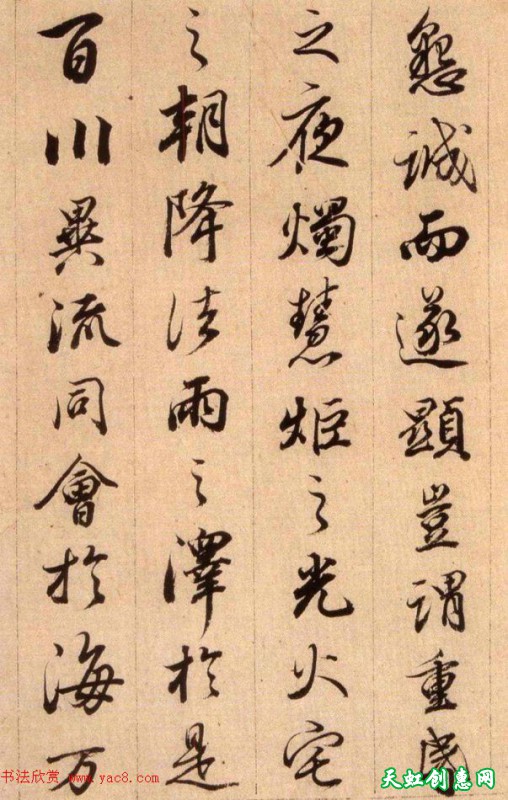 懇誠而遂顯豈謂重昬
之夜燭慧炬之光火宅
之朝降法雨之澤於是
百川異流同會於海万
书法欣赏 www.yac8.com
天虹创惠网